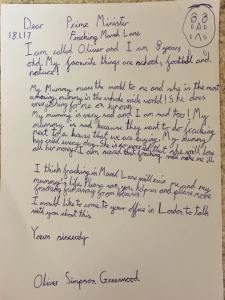 Dear Prime Minister
18.1.17 Fracking Marsh Lane
I am called Oliver and I am 8 years
old. My favourite things are school, football and
nature!
My Mummy means the world to me and she is the most
amazing mummy in the whole wide world! She does
everything for me and her
My mummy is very sad and I am sad too! My
mummy is sad because they want to do fracking
next to a house they we are buying. My mummy
has cried every day. She is so worried that she will lose
all her money! I am worried that fracking will make me ill.
I think fracking in Marsh Lane will ruin my and my
mummy's life. Please can you help us and please move
fracking far away from houses!
I would like to come to your office in London to talk
with you about this.
Yours sincerely
Oliver Simpson Greenwood